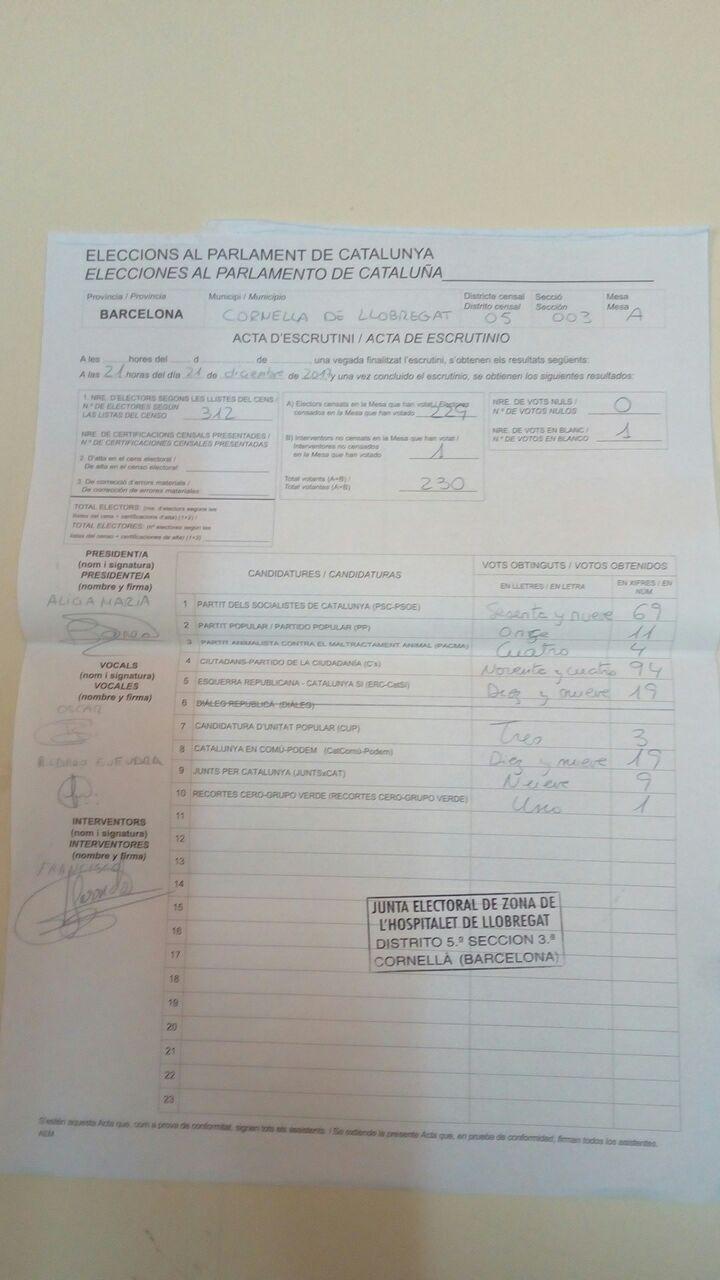 ELECCIONS AL PARLAMENT DE CATALUNYA
ELECCIONES AL PARLAMENTO DE CATALUÑA
Província / Provincia
Municipi / Municipio
Districte censal
Distrito censal
Secció
Sección
Mesa
Mesa
BARCELONA
CORNELLA DE LLOBREGAT
05
003
A
ACTA D'ESCRUTINI / ACTA DE ESCRUTINIO
A les hores del d de , una vegada finalitzat l'escrutini, s'obtenen els resultats següents:
A las 21 horas del día 21 de diciembre de 2017 y una vez concluido el escrutinio, se obtienen los siguientes resultados:
1. NRE. D'ELECTORS SEGONS LES LLISTES DEL CENS /
N.º DE ELECTORES SEGÚN
LAS LISTAS DEL CENSO 312
NRE. DE CERTIFICACIONS CENSALS PRESENTADES /
N.º DE CERTIFICACIONES CENSALES PRESENTADAS
2. D'alta en el cens electoral /
De alta en el censo electoral:
3. De correcció d'errors materials /
De corrección de errores materiales:
TOTAL ELECTORS: (nre. d'electors segons les
llistes del cens + certificacions d'alta) (1+2) /
TOTAL ELECTORES: (nº electores según las
listas del censo + certificaciones alta) (1+2)
A) Electors censats en la Mesa que han votat / Electores
censados en la Mesa que han votado 229
B) Interventors no censats en la Mesa que han votat /
Interventores no censados
en la Mesa que han votado 1
Total votants (A+B) /
Total votantes (A+B) 230
NRE. DE VOTS NULS /
N.º DE VOTOS NULOS 0
NRE. DE VOTS EN BLANC /
N.º DE VOTOS EN BLANCO 1
PRESIDENT/A
(nom i signatura)
PRESIDENTE/A
(nombre y firma)
ALICIA MARIA
VOCALS
(nom i signatura)
VOCALES
(nombre y firma)
OSCAR
INTERVENTORS
(nom i signatura)
INTERVENTORES
(nombre y firma)
FRANCISCO
CANDIDATURES / CANDIDATURAS
VOTS OBTINGUTS / VOTOS OBTENIDOS
EN LLETRES / EN LETRA
EN XIFRES / EN NÚM.
1 PARTIT DELS SOCIALISTES DE CATALUNYA (PSC-PSOE) Sesenta y nueve 69
2 PARTIT POPULAR / PARTIDO POPULAR (PP) Once 11
3 PARTIT ANIMALISTA CONTRA EL MALTRACTAMENT ANIMAL (PACMA) Cuatro 4
4 CIUTADANS-PARTIDO DE LA CIUDADANÍA (C's) Noventa y cuatro 94
5 ESQUERRA REPUBLICANA - CATALUNYA SÍ (ERC-CatSí) Diez y nueve 19
6 DIÀLEG REPUBLICÀ (DIÀLEG)
7 CANDIDATURA D'UNITAT POPULAR (CUP) Tres 3
8 CATALUNYA EN COMÚ-PODEM (CatComú-Podem) Diez y nueve 19
9 JUNTS PER CATALUNYA (JUNTSxCAT) Nueve 9
10 RECORTES CERO-GRUPO VERDE (RECORTES CERO-GRUPO VERDE) Uno 1
11
12
13
14
15
16
17
18
19
20
21
22
23
JUNTA ELECTORAL DE ZONA DE
L'HOSPITALET DE LLOBREGAT
DISTRITO 5.º SECCION 3.ª
CORNELLÀ (BARCELONA)
S'estén aquesta Acta que, com a prova de conformitat, signen tots els assistents. / Se extiende la presente Acta que, en prueba de conformidad, firman todos los asistentes.